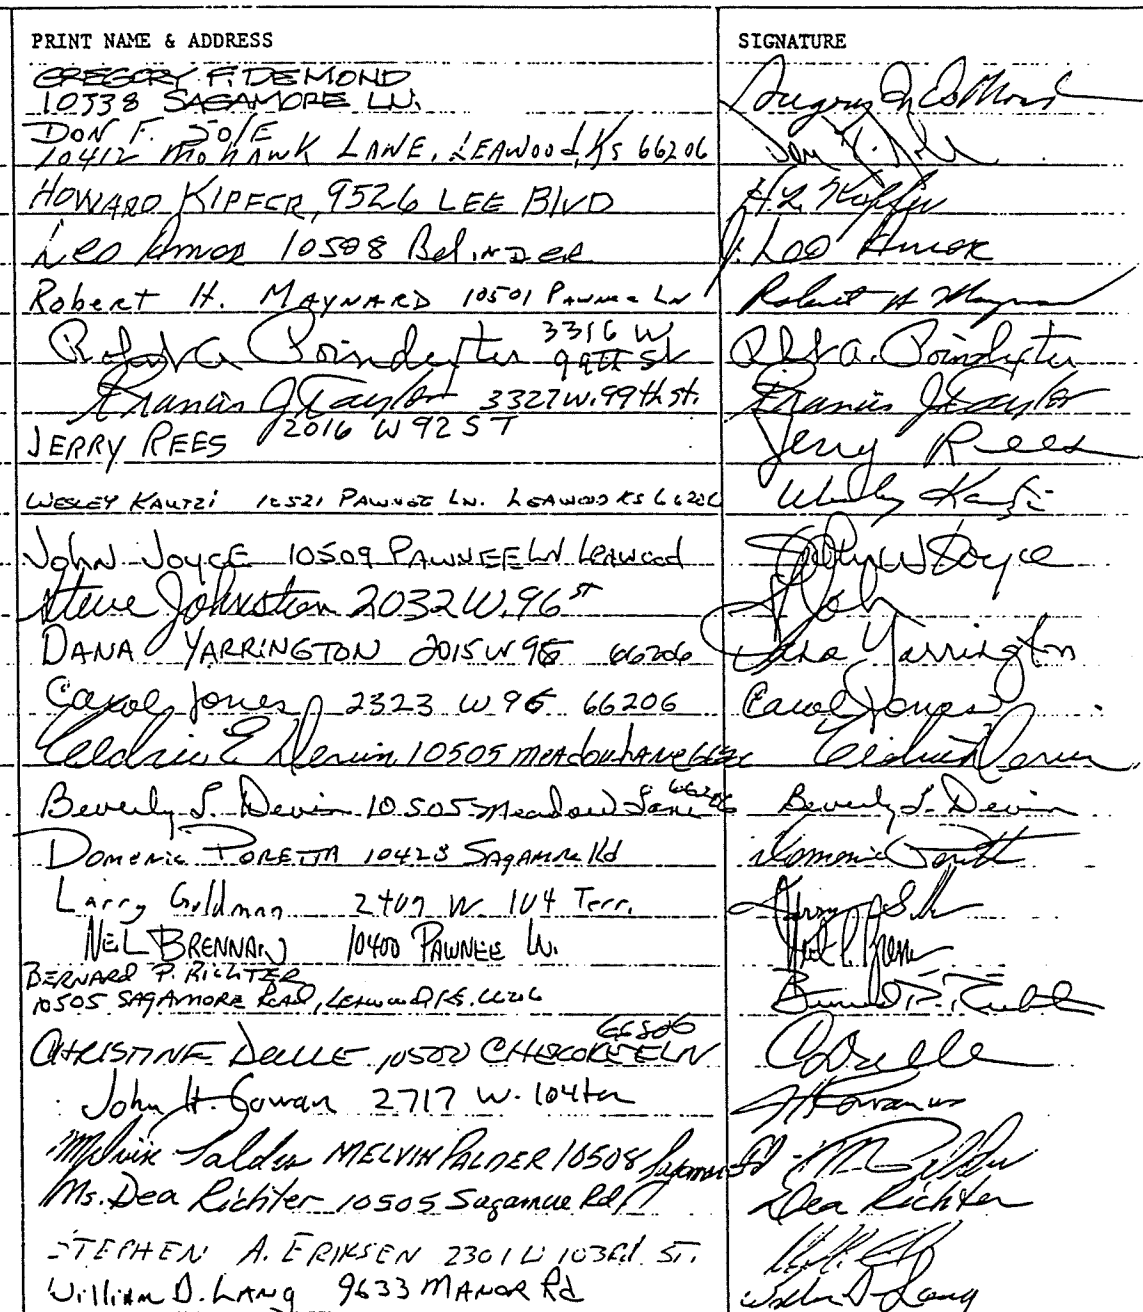 PRINT NAME & ADDRESS SIGNATURE
GREGORY F. DEMOND
10338 SAGAMORE LN.
DON F. SOLE
10412 MOHAWK LANE, LEAWOOD, KS 66206
HOWARD KIPFER, 9526 LEE BLVD H L Kipfer
Leo Amos 10508 BELINDER J. Leo
Robert H. MAYNARD 10501 PAWNEE LN Robert H Maynard
Poindexter 3316 W 99th St A. Poindexter
Francis J Taylor 3327 W. 99th St. Francis J Taylor
JERRY REES 2016 W 92 ST Jerry Rees
WESLEY KAUTZI 10521 PAWNEE LN. LEAWOOD KS 66206 Wesley
JOHN JOYCE 10509 PAWNEE LN LEAWOOD John W Joyce
Steve Johnston 2032 W. 96 ST
DANA YARRINGTON 2015 W 96 66206 Dana Yarrington
Carol Jones 2323 W 96 66206 Carol Jones
Cedric E Devin 10505 MEADOW LANE Cedric Devin
Beverly L. Devin 10505 Meadow Lane 66206 Beverly L. Devin
DOMENIC PORETTA 10428 SAGAMORE Rd Domenic
Larry Goldman 2409 W. 104 Terr.
NEL BRENNAN 10400 PAWNEE LN.
BERNARD P. RICHTER
10505 SAGAMORE ROAD, LEAWOOD KS. 66206 Bernard P. Richter
CHRISTINE DELLE 10500 CHEROKEE LN
John H. Gowan 2717 W. 104 ter
Melvin Palder MELVIN PALDER 10508 Sagamore Rd
Ms. Dea Richter 10505 Sagamore Rd Dea Richter
STEPHEN A. ERIKSEN 2301 W 103Rd ST.
William D. LANG 9633 MANOR Rd William D Lang